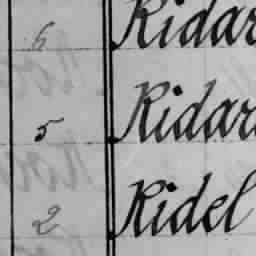 6 Ridar
5 Ridar
2 Ridel